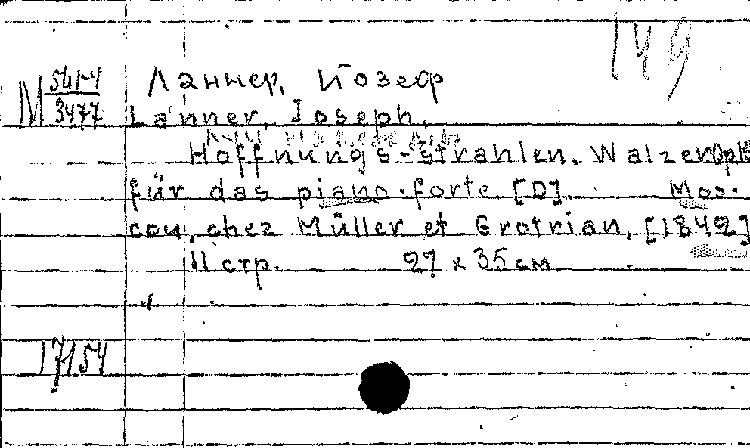 149
М 5414/3477 Ланнер, Йозеф
Lanner, Joseph.
Hoffnungs-strahlen. Walzer
für das piano-forte [D]. Mos-
cou, chez Müller et Grotrian, [1842]
11 стр. 27 x 35 см
17154